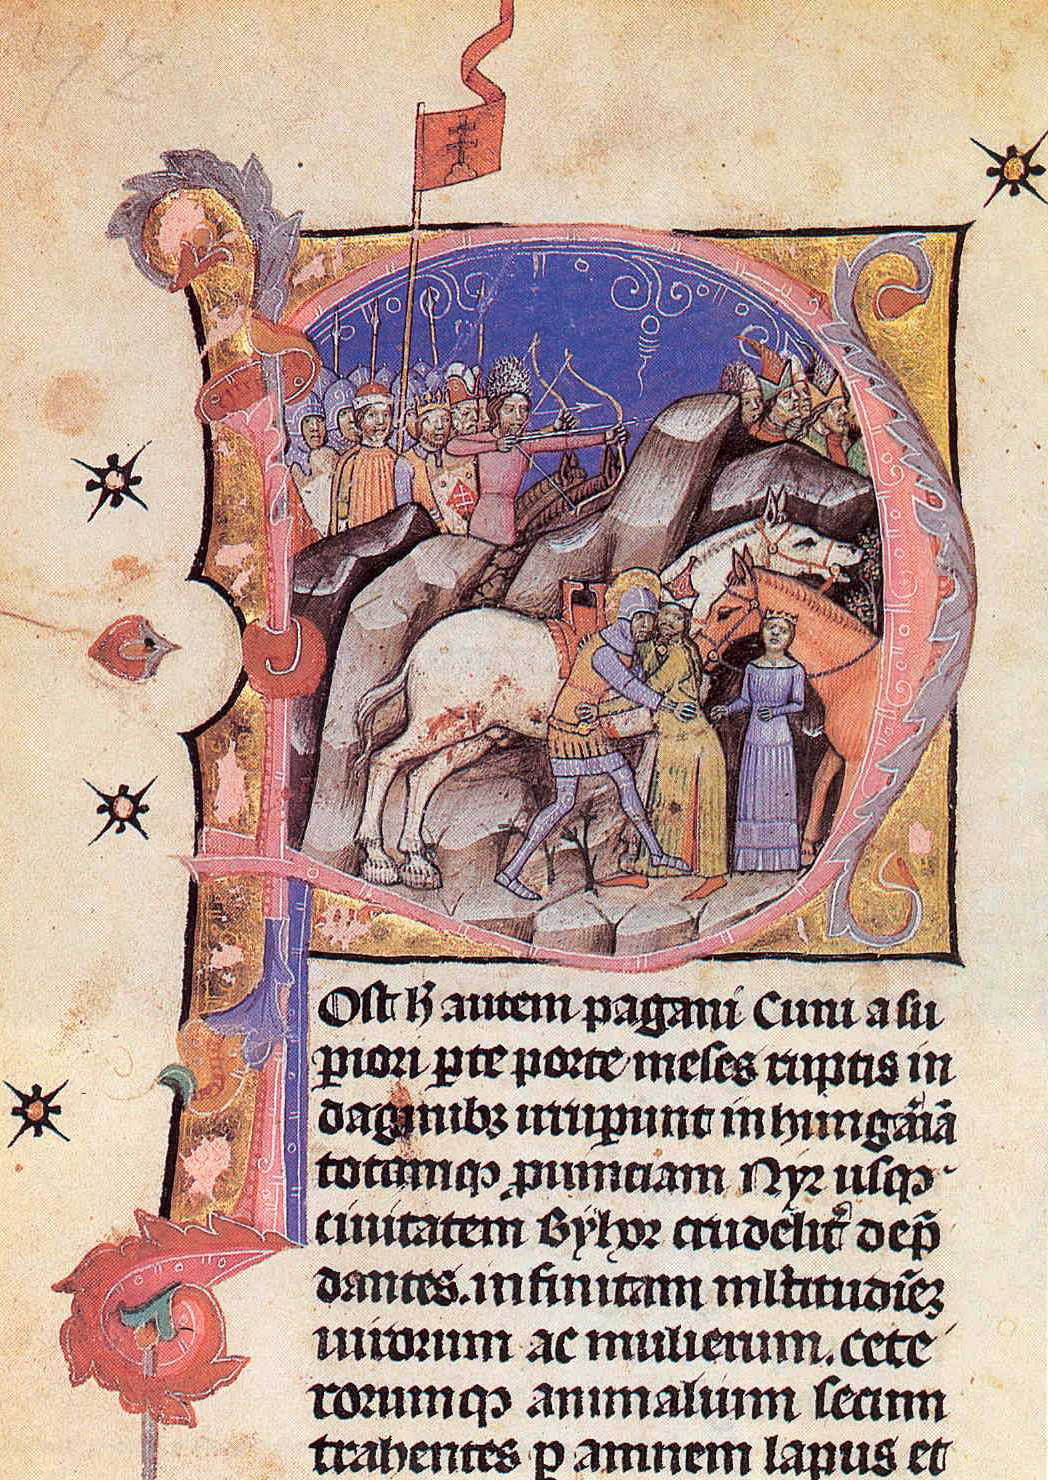 Post h̄ autem pagani Cuni a su
ꝑiori ꝑte porte meses ruptis in
daginibꝫ irruꝑunt in hungariā
totamqꝫ ꝓuinciam Nyr usqꝫ
ciuitatem Byhor crudelit̉ dep̄
dantes. infinitam ml̄titudinēꝫ
uirorum ac mulierum. cete
rorumqꝫ animalium secum
trahentes ꝑ amnem lapus et